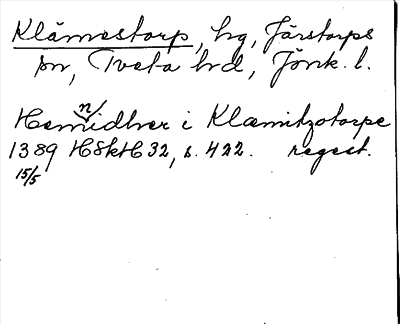 Klämmestorp, hg, Järstorps
sn, Tveta hd, Jönk. l.
Hemnidher i Klæmitzotorpe
1389 HSkH 32, s. 422. regest.
15/5